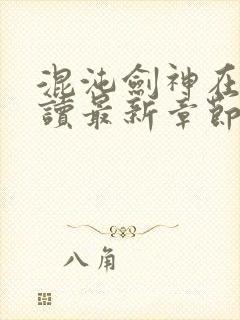 混沌劍神在
讀最新章節
八角